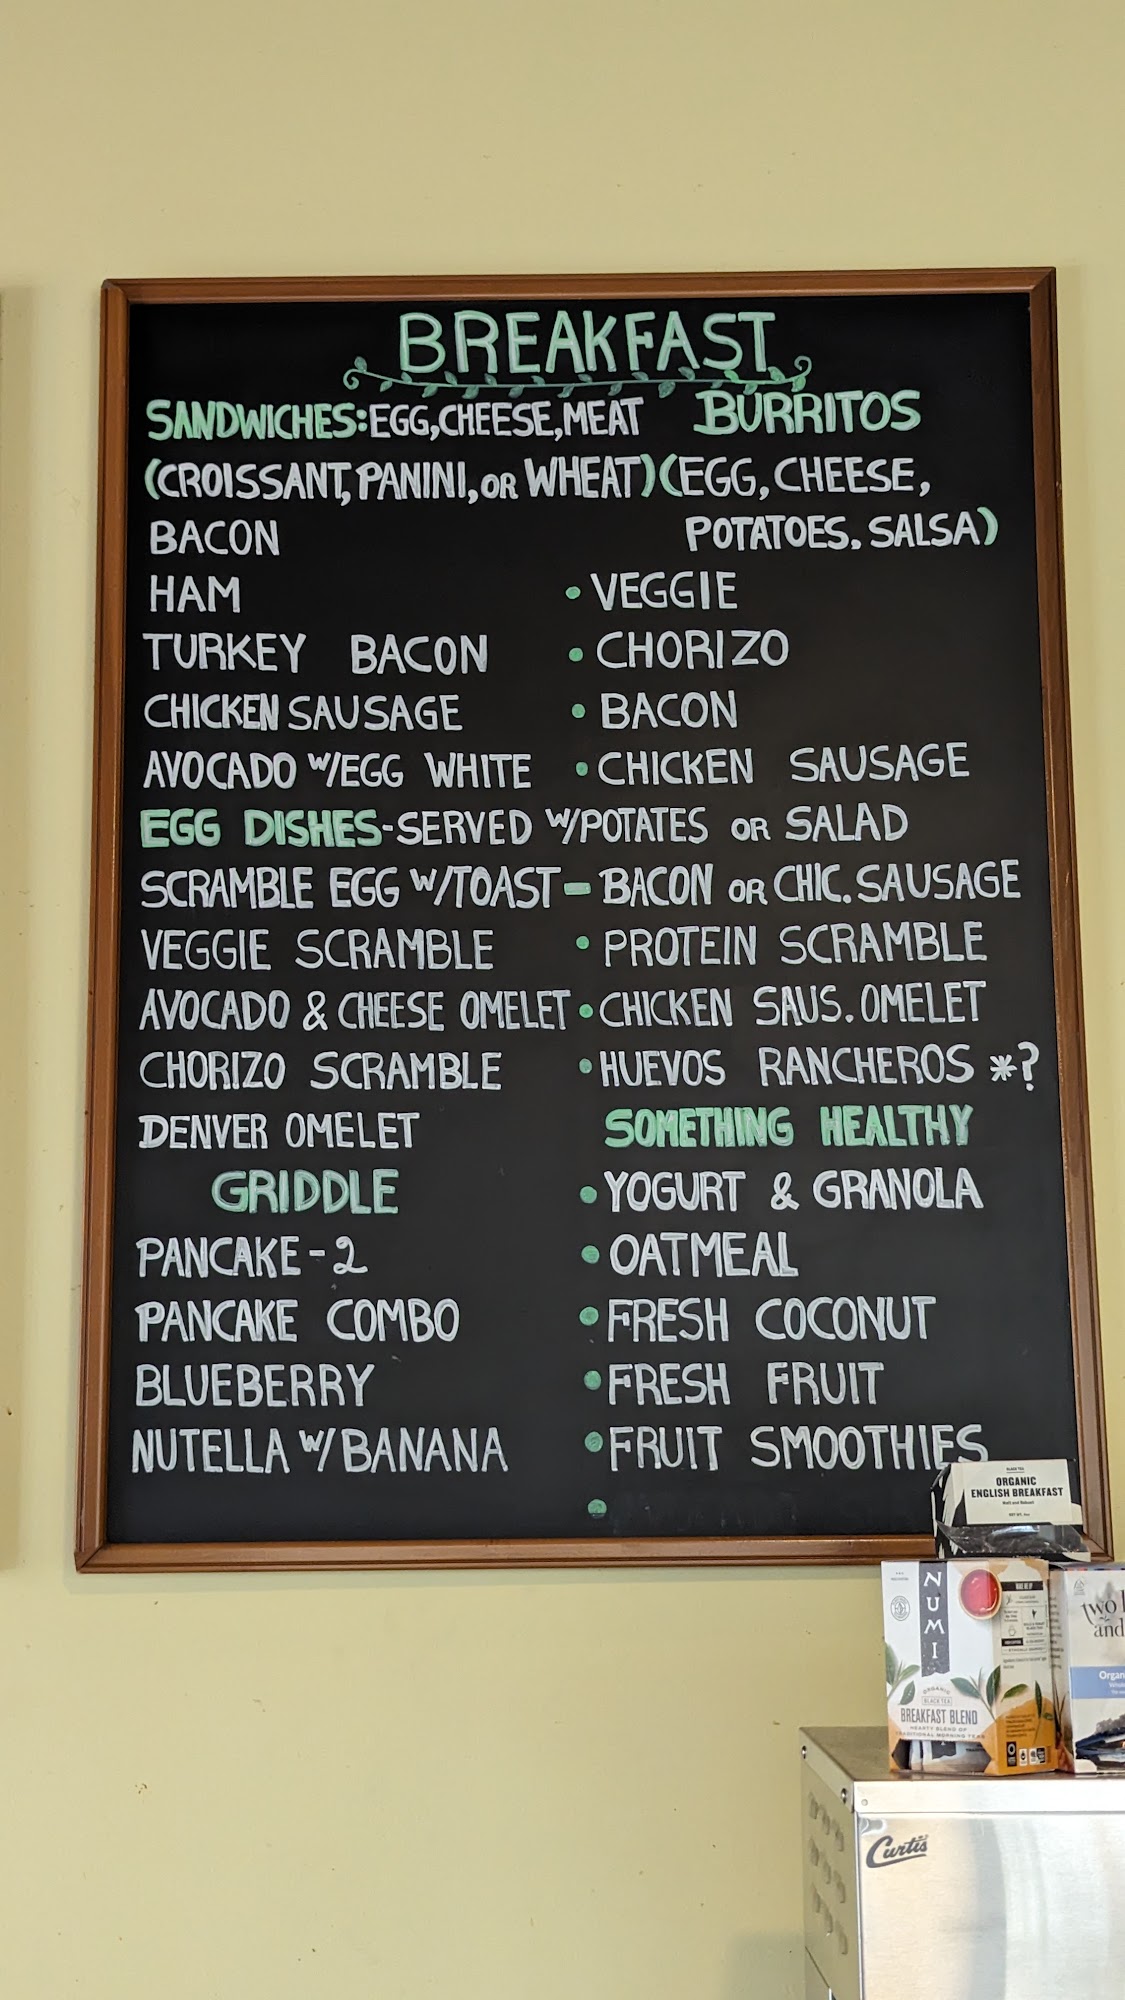 BREAKFAST
SANDWICHES: EGG, CHEESE, MEAT
(CROISSANT, PANINI, OR WHEAT)
BACON
HAM
TURKEY BACON
CHICKEN SAUSAGE
AVOCADO W/EGG WHITE
BURRITOS
(EGG, CHEESE,
POTATOES. SALSA)
• VEGGIE
• CHORIZO
• BACON
• CHICKEN SAUSAGE
EGG DISHES-SERVED W/POTATES OR SALAD
SCRAMBLE EGG W/TOAST - BACON OR CHIC. SAUSAGE
VEGGIE SCRAMBLE • PROTEIN SCRAMBLE
AVOCADO & CHEESE OMELET • CHICKEN SAUS. OMELET
CHORIZO SCRAMBLE • HUEVOS RANCHEROS *?
DENVER OMELET
GRIDDLE
PANCAKE - 2
PANCAKE COMBO
BLUEBERRY
NUTELLA W/BANANA
SOMETHING HEALTHY
• YOGURT & GRANOLA
• OATMEAL
• FRESH COCONUT
• FRESH FRUIT
• FRUIT SMOOTHIES
•
BLACK TEA
ORGANIC
ENGLISH BREAKFAST
NUMI
ORGANIC
BLACK TEA
BREAKFAST BLEND
HEARTY BLEND OF
TRADITIONAL MORNING TEAS
two
and
Organ
Curtis